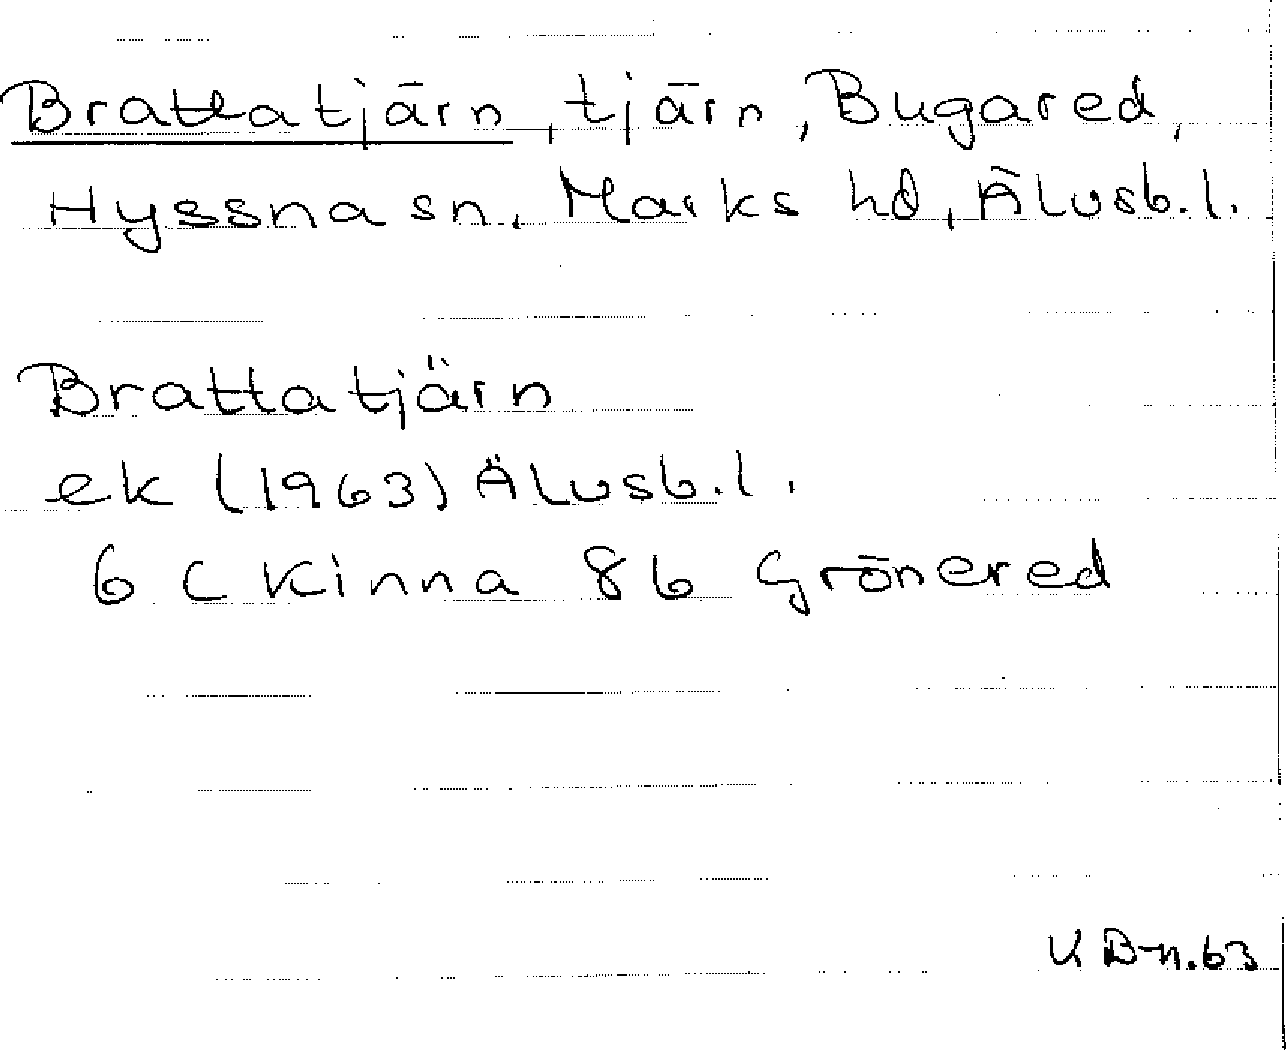 Brattatjärn, tjärn, Bugared,
Hyssna sn, Marks hd, Älvsb.l.
Brattatjärn
ek (1963) Älvsb.l.
6 C Kinna 8b Grönered
K B-n.63